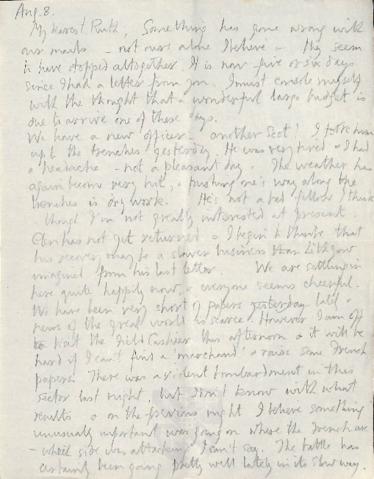 Aug. 8.
My dearest Ruth, Something has gone wrong with
our mails - not ours alone I believe - they seem
to have stopped altogether. It is now five or six days
since I had a letter from you. I must console myself
with the thought that a wonderful large budget is
due to arrive one of these days.
We have a new officer - another Scot! I took him
up to the trenches yesterday. He was very tired & I had
a headache - not a pleasant day. The weather has
again become very hot, & pushing one's way along the
trenches is dry work. He's not a bad fellow I think
though I'm not greatly interested at present.
has not yet returned & I begin to think that
his recovery may be a slower business than Lithgow
imagined from his last letter. We are settling in
here quite happily now & everyone seems cheerful.
We have been very short of papers yesterday
news of the great world is scarce. However I am off
to the Field Cashier this afternoon & it will be
hard if I can't find a 'marchand' & raise some French
papers. There was a violent bombardment in this
sector last night, but I don't know with what
results & on the previous night I believe something
unusually important was going on where the French are
- which side was attacking I can't say. The battle has
certainly been going pretty well lately in its slow way.